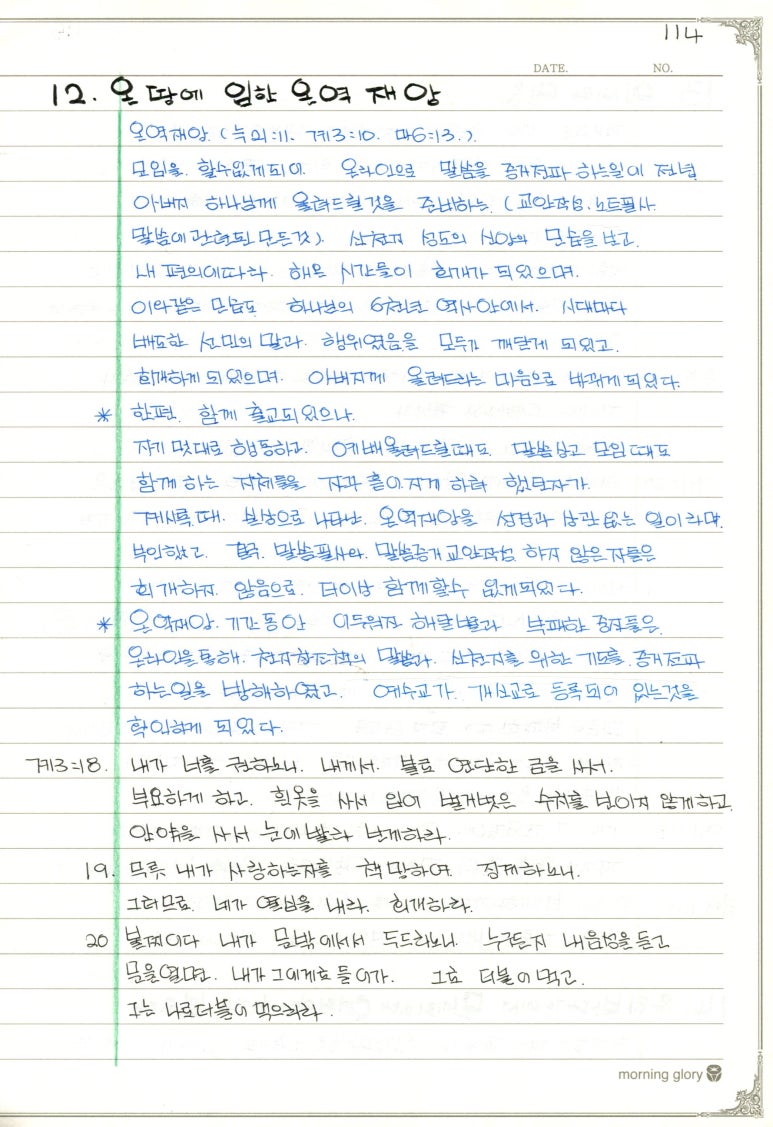 114
DATE. NO.
12. 온 땅에 임한 온역 재앙
온역재앙. (눅21:11. 계3:10. 마6:13.).
모임을. 할수없게되어. 온라인으로 말씀을 증거전파 하는일이 전념
아버지 하나님께 올려드릴것을 준비하는. (교안작성. 노트필사.
말씀에 관련된 모든것). 신천지 성도의 신앙의 모습을 보고.
내 편의에따라. 해온 시간들이 회개가 되었으며.
이와같은 모습도 하나님의 6천년 역사안에서. 시대마다
배도한 선민의 말과. 행위였음을 모두가 깨닫게 되었고.
회개하게 되었으며. 아버지께 올려드리는 마음으로 바뀌게되었다.
* 한편. 함께 출교되었으나.
자기 멋대로 행동하고. 예배올려드릴때도. 말씀보고 모임때도
함께 하는 지체들을 자과 흩어지게 하려 했던자가.
계시록때. 실상으로 나타난. 온역재앙을 성경과 상관 없는 일이라며.
부인했고. 결국. 말씀필사와. 말씀증거 교안작성 하지 않은 자들은
회개하지. 않음으로. 더이상 함께할수 없게되었다.
* 온역재앙. 기간동안 어두워진 해달별과 부패한 종자들은.
온라인을통해. 천지창조책의 말씀과. 신천지를 위한 기도를. 증거전파
하는일을 방해하였고. 예수교가 개신교로 등록되어 있는것을
확인하게 되었다.
계3:18. 내가 너를 권하노니. 내게서. 불로 연단한 금을 사서.
부요하게 하고. 흰옷을 사서 입어 벌거벗은 수치를 보이지 않게하고.
안약을 사서 눈에발라 보게하라.
19. 무릇 내가 사랑하는자를 책망하여 징계하노니.
그러므로. 네가 열심을 내라. 회개하라.
20 볼찌어다 내가 문밖에서서 두드리노니. 누구든지 내음성을 듣고
문을열면. 내가 그에게로 들어가. 그로 더불어 먹고.
그는 나로더불어 먹으리라.
morning glory